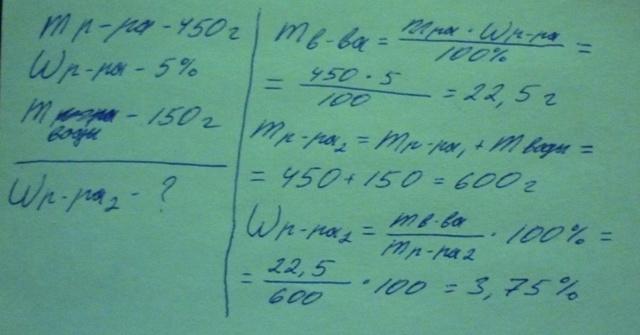 mр-ра - 450 г
Wр-ра - 5%
m воды - 150 г
Wр-ра₂ - ?
mв-ва = mра · Wр-ра / 100% =
= 450 · 5 / 100 = 22,5 г
mр-ра₂ = mр-ра₁ + mводы =
= 450 + 150 = 600 г
Wр-ра₂ = mв-ва / mр-ра2 · 100% =
= 22,5 / 600 · 100 = 3,75%